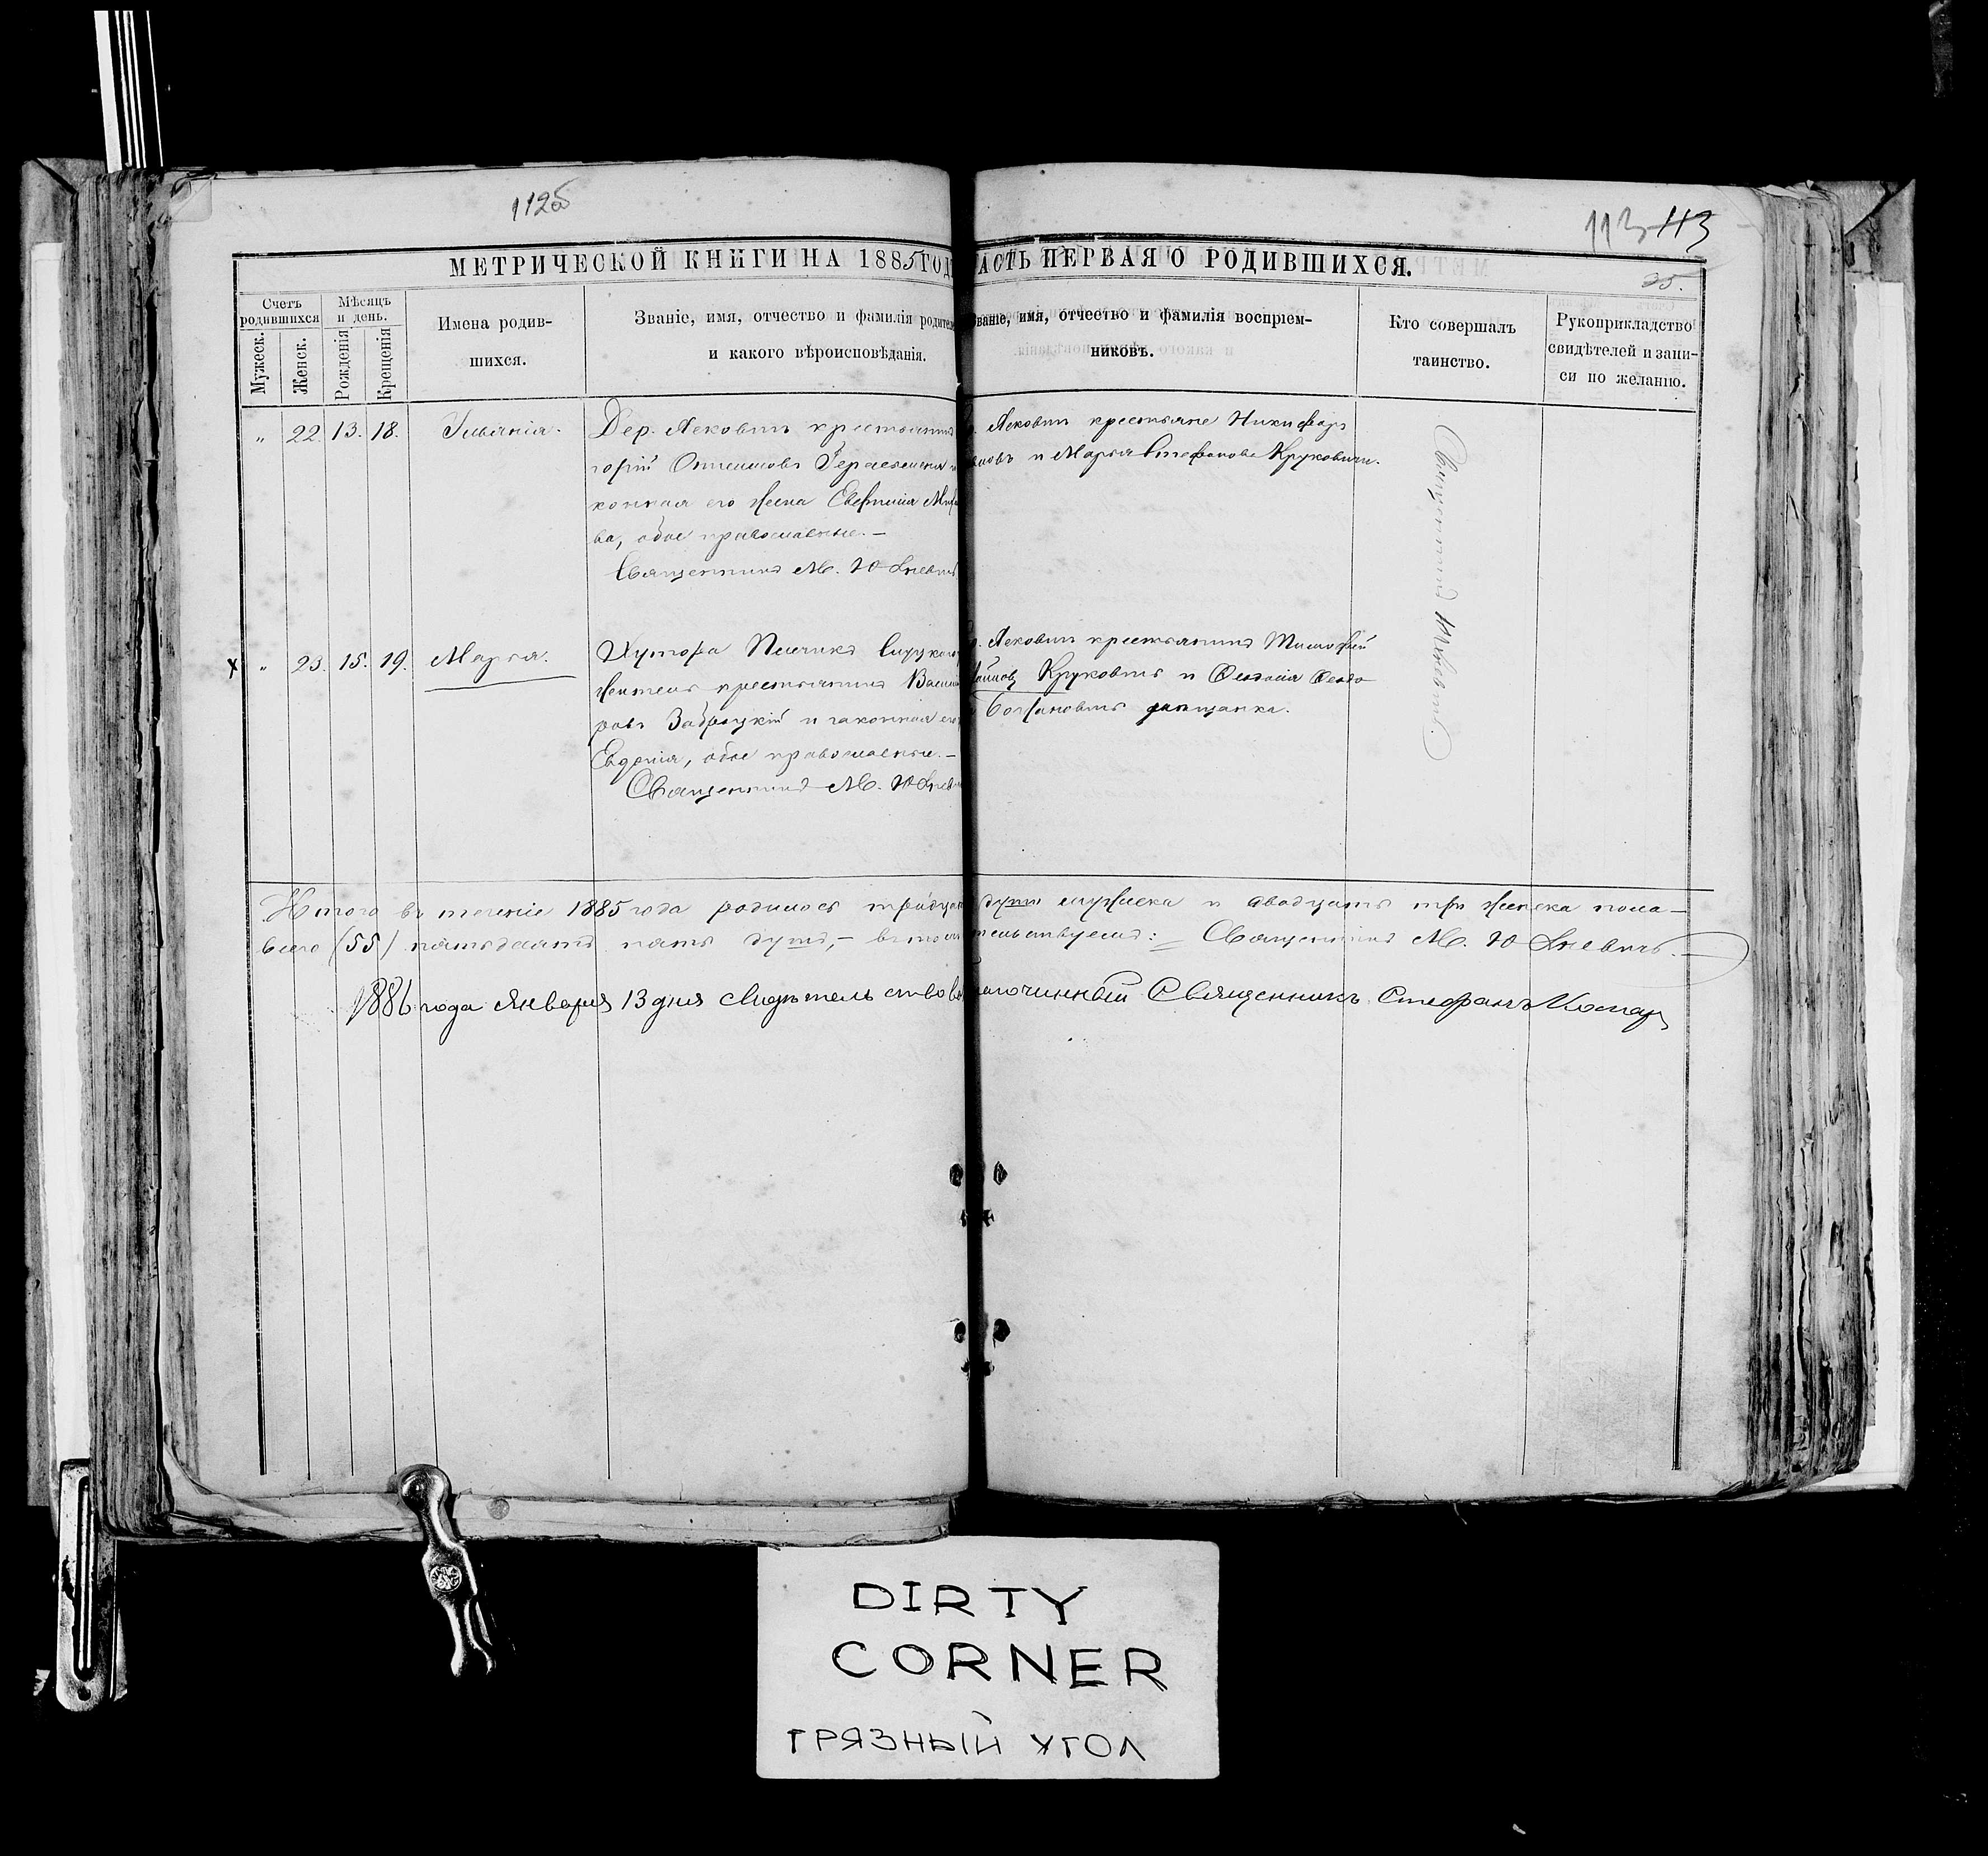 112б
113 113
35.
МЕТРИЧЕСКОЙ КНИГИ НА 1885 ГОД
АСТЬ ПЕРВАЯ О РОДИВШИХСЯ.
Счетъ родившихся
Мужеск.
Женск.
Мѣсяцъ и день.
Рожденія
Крещенія
Имена родив-
шихся.
Званіе, имя, отчество и фамилія родител
и какого вѣроисповѣданія.
Званіе, имя, отчество и фамилія воспріем-
никовъ.
Кто совершалъ
таинство.
Рукоприкладство
свидѣтелей и запи-
си по желанію.
" 22. 13. 18.
Дер. Лековичъ крестьянинъ
горій
конная его жена
ва, обое православные. —
Священникъ М. Юхневичъ
Лековичъ крестьяне Никифоръ
новъ и Марья Стефанова Круковичи.
Священникъ Юхневичъ
х " 23. 15. 19. Марья.
Хутора
житель крестьянинъ Васил
ровъ Забродкій и законная его
Евдокія, обое православные. —
Священникъ М. Юхневи
Лековичъ крестьянинъ Тимофей
Круковичъ и Феодосія Феодо
Божановичъ
Итого въ теченіе 1885 года родилось тридцат
душъ мужеска и двадцать три женска пола —
всего (55) пятьдесятъ пять душъ, — въ том
тельствуемъ: Священникъ М. Юхневичъ. —
1886 года Января 13 дня свидѣтельствовал
лагочинный Священникъ Стефанъ Комар
DIRTY
CORNER
ГРЯЗНЫЙ УГОЛ